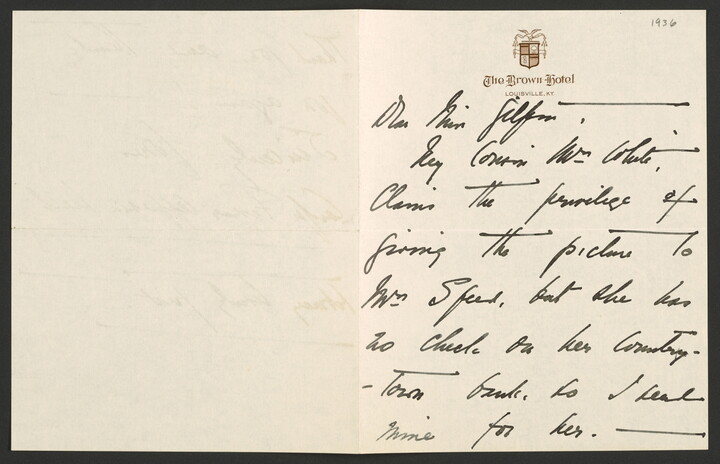 1936
The Brown Hotel
LOUISVILLE, KY.
Dear Miss
My Cousin Mrs White,
Claims the privilege of
giving the picture to
Mrs Speed, but she has
no check on her Country-
-Town bank, so I send
mine for her.